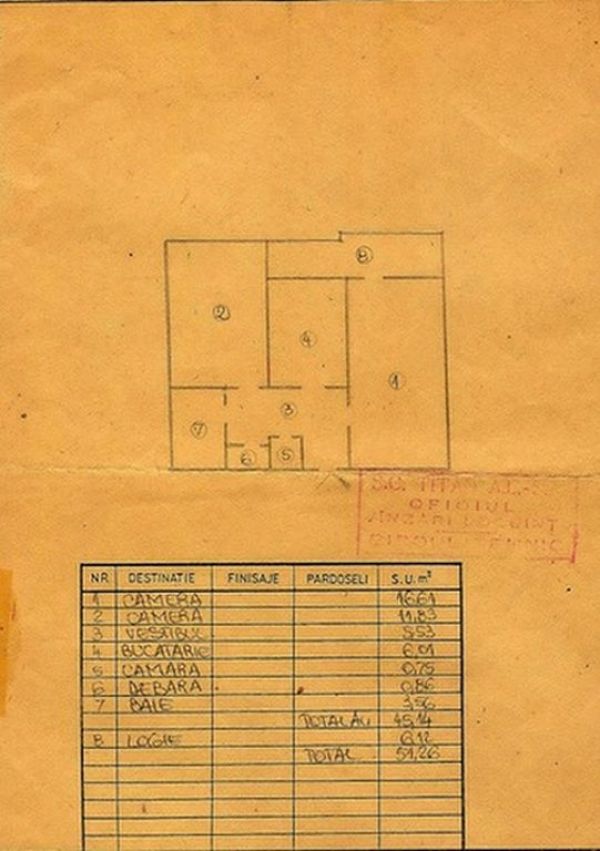 8
2
4
1
3
7
6
5
S.C. TITAN
OFICIUL
NR DESTINATIE FINISAJE PARDOSELI S.U. m²
1 CAMERA 16,61
2 CAMERA 11,83
3 VESTIBUL 5,53
4 BUCATARIE 6,01
5 CAMARA 0,75
6 DEBARA 0,86
7 BAIE 3,56
TOTAL AU 45,14
8 LOGIE 6,12
TOTAL 51,26